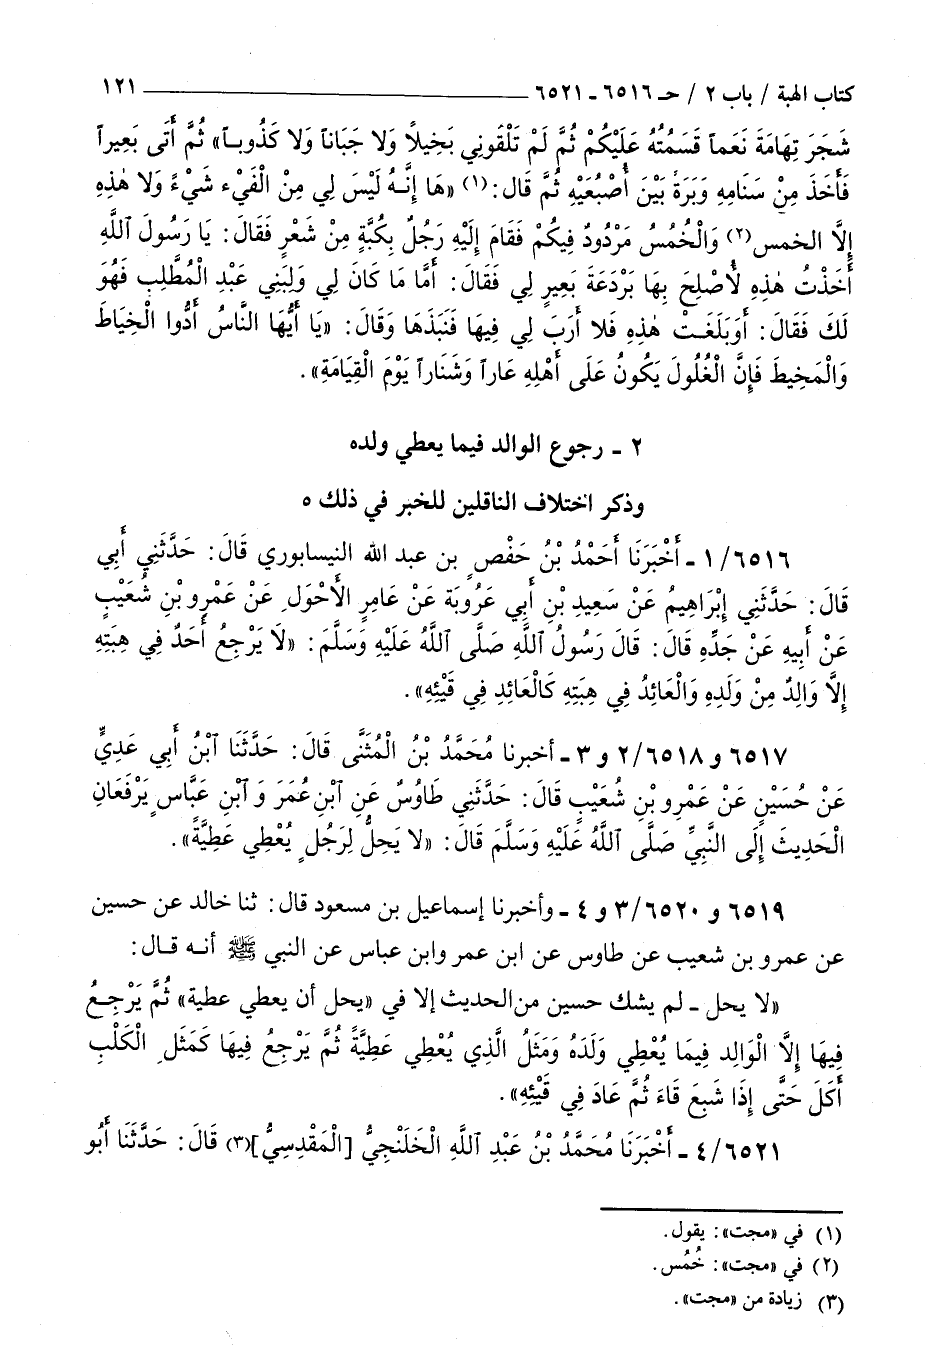 كتاب الهبة / باب ٢ / حـ ٦٥١٦ ـ ٦٥٢١ ١٢١
شَجَرَ تِهَامَةَ نَعَماً قَسَمْتُهُ عَلَيْكُمْ ثُمَّ لَمْ تَلْقَونِي بَخِيلاً وَلا جَبَاناً وَلا كَذُوباً» ثُمَّ أَتَى بَعِيراً
فَأَخَذَ مِنْ سَنَامِهِ وَبَرَةً بَيْنَ أُصْبُعَيْهِ ثُمَّ قَال:(١) «هَا إِنَّـهُ لَيْسَ لِي مِنْ الْفَيْء شَيْءٌ وَلا هٰذِهِ
إِلَّا الخمس(٢) وَالْخُمُسُ مَرْدُودٌ فِيكُمْ فَقَامَ إِلَيْهِ رَجُلٌ بِكُبَّةٍ مِنْ شَعْرٍ فَقَالَ: يَا رَسُولَ ٱللَّهِ
أَخَذْتُ هٰذِهِ لأُصْلِحَ بِهَا بَرْدَعَةَ بَعِيرٍ لِي فَقَالَ: أَمَّا مَا كَانَ لِي وَلِبَنِي عَبْدِ الْمُطَّلِبِ فَهُوَ
لَكَ فَقَالَ: أَوَبَلَغَـتْ هٰذِهِ فَلا أَرَبَ لِي فِيهَا فَنَبَذَهَا وَقَالَ: «يَا أَيُّهَا النَّاسُ أَدُّوا الْخِيَاطَ
وَالْمَخِيطَ فَإِنَّ الْغُلُولَ يَكُونُ عَلَى أَهْلِهِ عَاراً وَشَنَاراً يَوْمَ الْقِيَامَةِ».
٢ ـ رجوع الوالد فيما يعطي ولده
وذكر اختلاف الناقلين للخبر في ذلك ٥
١/٦٥١٦ ـ أَخْبَرَنَا أَحَمْدُ بْنُ حَفْصٍ بن عبد الله النيسابوري قَالَ: حَدَّثَنِي أَبِي
قَالَ: حَدَّثَنِي إِبْرَاهِيمُ عَنْ سَعِيدِ بْنِ أَبِي عَرُوبَةَ عَنْ عَامِرٍ الأَحْوَلِ عَنْ عَمْرِو بْنِ شُعَيْبٍ
عَنْ أَبِيهِ عَنْ جَدِّهِ قَالَ: قَالَ رَسُولُ ٱللَّهِ صَلَّى ٱللَّهُ عَلَيْهِ وَسَلَّمَ: «لَا يَرْجِعُ أَحَدٌ فِي هِبَتِهِ
إِلَّا وَالِدٌ مِنْ وَلَدِهِ وَالْعَائِدُ فِي هِبَتِهِ كَالْعَائِدِ فِي قَيْئِهِ».
٦٥١٧ و ٢/٦٥١٨ و ٣ ـ أخبرنا مُحَمَّدُ بْنُ الْمُثَنَّى قَالَ: حَدَّثَنَا ٱبْنُ أَبِي عَدِيٍّ
عَنْ حُسَيْنٍ عَنْ عَمْرِو بْنِ شُعَيْبٍ قَالَ: حَدَّثَنِي طَاوُسٌ عَنِ ٱبْنِ عُمَرَ وَ ٱبْنِ عَبَّاسٍ يَرْفَعَانِ
الْحَدِيثَ إِلَى النَّبِيِّ صَلَّى ٱللَّهُ عَلَيْهِ وَسَلَّمَ قَالَ: «لا يَحِلُّ لِرَجُلٍ يُعْطِي عَطِيَّةً».
٦٥١٩ و ٣/٦٥٢٠ و ٤ ـ وأخبرنا إسماعيل بن مسعود قال: ثنا خالد عن حسين
عن عمرو بن شعيب عن طاوس عن ابن عمر وابن عباس عن النبي ﷺ أنـه قـال:
«لا يحل ـ لم يشك حسين من الحديث إلا في «يحل أن يعطي عطية» ثُمَّ يَرْجِعُ
فِيهَا إِلَّا الْوَالِدِ فِيمَا يُعْطِي وَلَدَهُ وَمَثَلُ الَّذِي يُعْطِي عَطِيَّةً ثُمَّ يَرْجِعُ فِيهَا كَمَثَلِ الْكَلْبِ
أَكَلَ حَتَّى إِذَا شَبِعَ قَاءَ ثُمَّ عَادَ فِي قَيْئِهِ».
٤/٦٥٢١ ـ أَخْبَرَنَا مُحَمَّدُ بْنُ عَبْدِ ٱللَّهِ الْخَلَنْجِيُّ [الْمَقْدِسِيُّ](٣) قَالَ: حَدَّثَنَا أَبُو
(١) في «مجت»: يقول.
(٢) في «مجت»: خُمُس.
(٣) زيادة من «مجت».